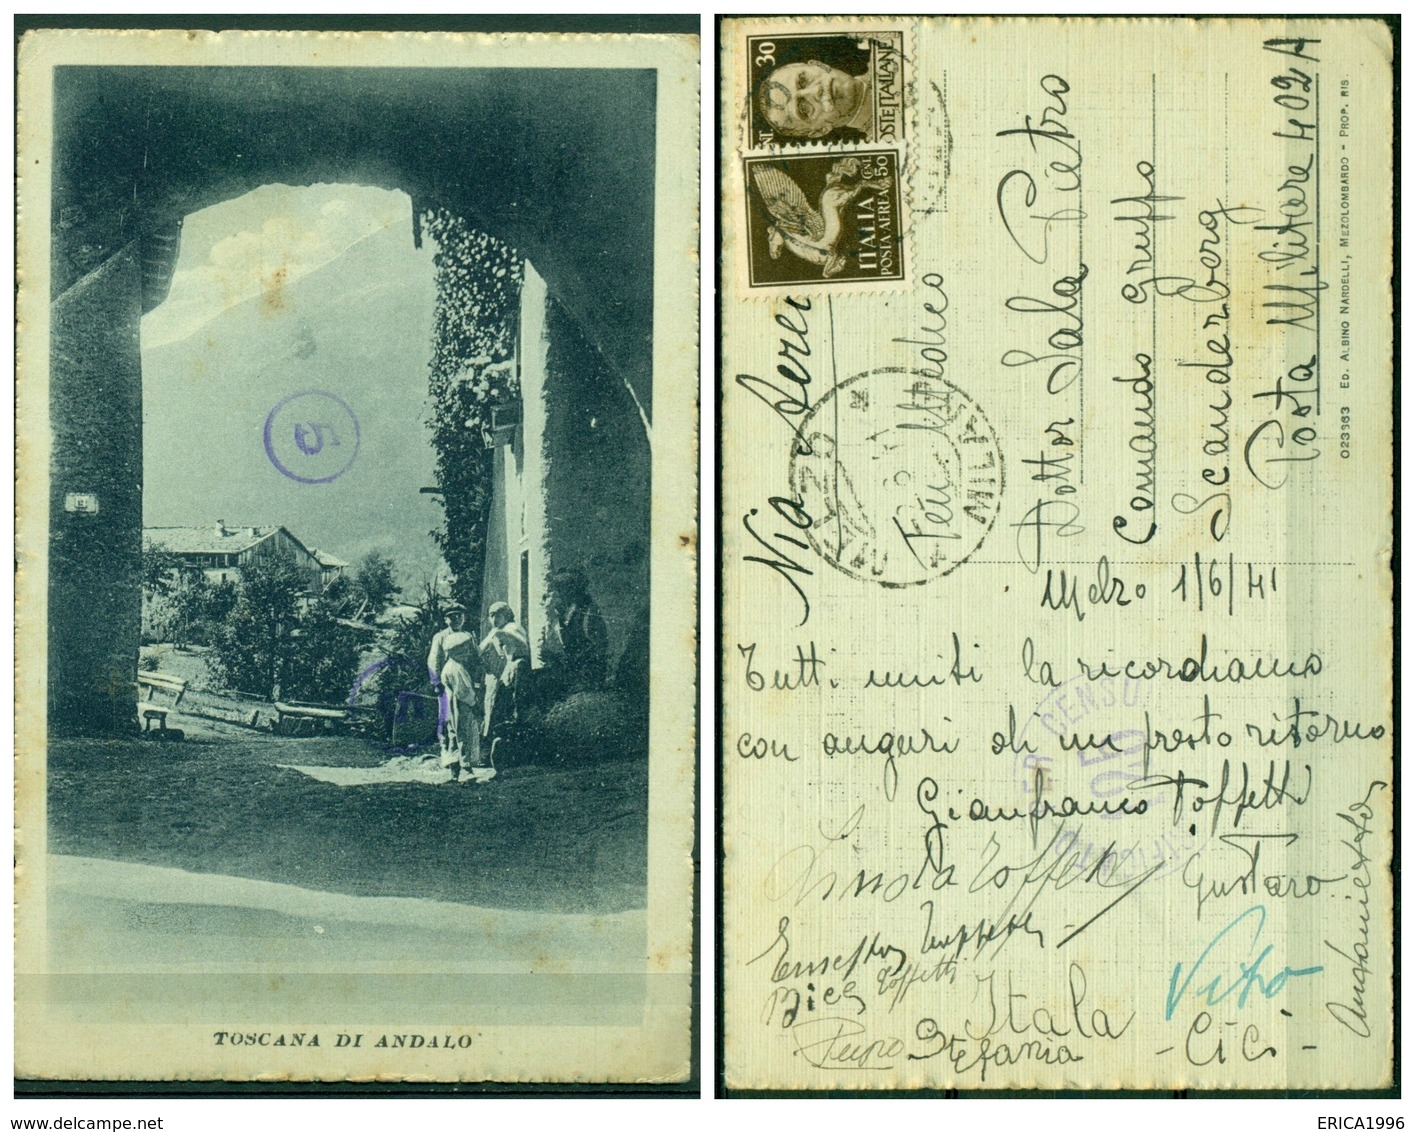 5
5
TOSCANA DI ANDALO
30
POSTE ITALIANE
ITALIA
POSTA AEREA
CENT. 50
Via Aerea
Ten. Medico
Dottor Sala Pietro
Comando Gruppo
Scanderberg
Posta Militare 402 A
MELZO
MILANO
023383 ED. ALBINO NARDELLI, MEZOLOMBARDO - PROP. RIS.
Melzo 1/6/41
Tutti uniti la ricordiamo
con auguri di un presto ritorno
Gianfranco Toffetti
Gustavo
Antonietta
Vito
Bice Toffetti
Itala
Stefania
- Cici -
VERIFICATO PER CENSURA
ERICA1996